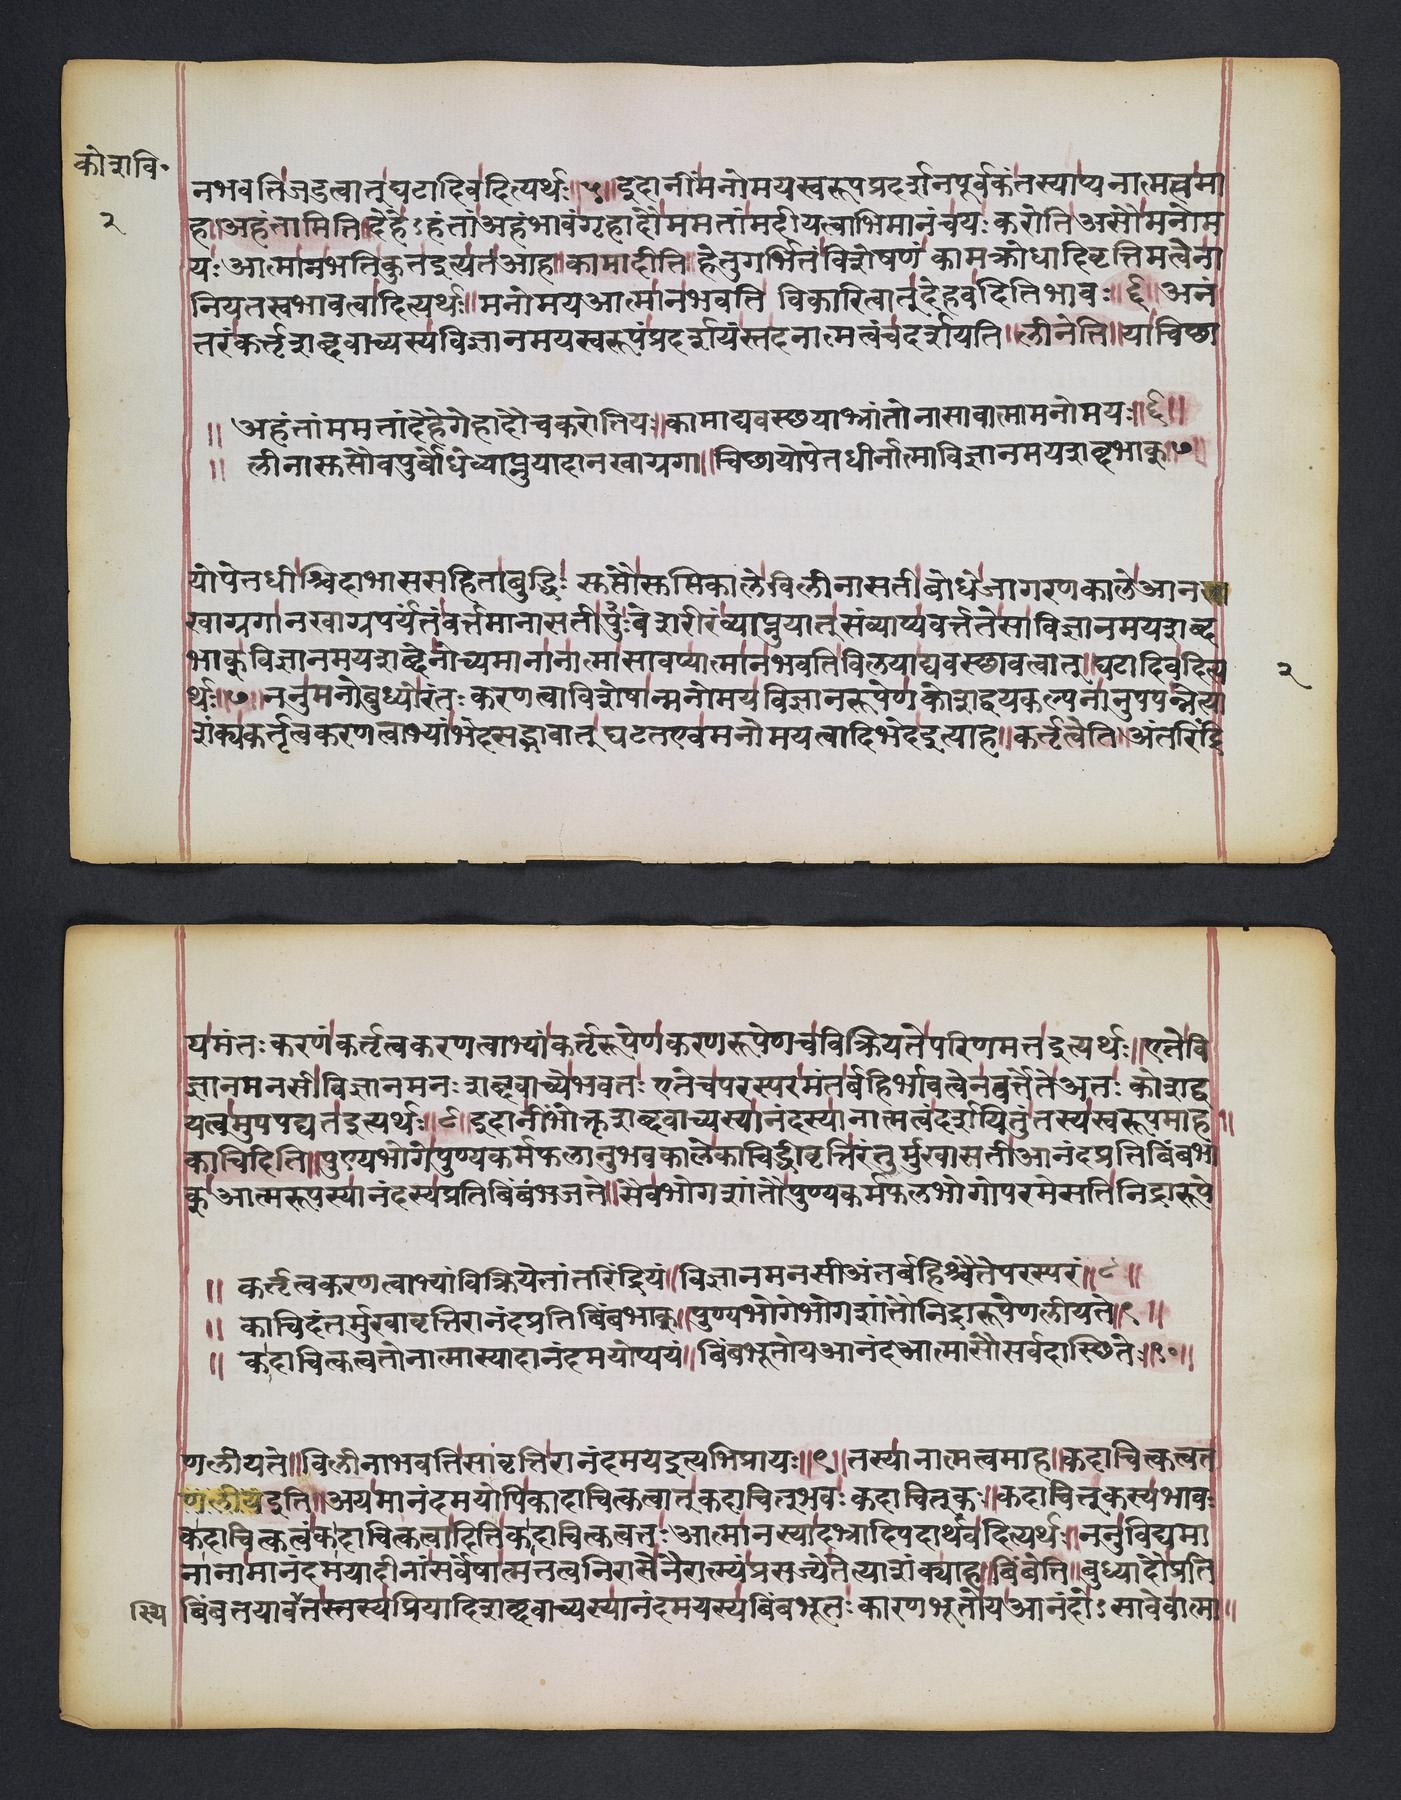 कोशवि॰
२
नभवतिजडत्वात् घटादिवदित्यर्थः ॥५॥ इदानींमनोमयस्वरूपप्रदर्शनपूर्वकंतस्याप्यनात्मत्वमा
ह। अहंतामिति देहेऽहंतां अहंभावंगृहादौममतांमदीयत्वाभिमानंचयः करोति असौमनोम
यः आत्मानभवति कुतइत्यतआह। कामादीति हेतुगर्भितंविशेषणं कामक्रोधादिवृत्तिमत्वेना
नियतस्वभावत्वादित्यर्थः॥ मनोमयआत्मानभवति विकारित्वात् देहवदितिभावः॥६॥ अनं
तरंकर्त्तृशब्दवाच्यस्यविज्ञानमयस्वरूपंप्रदर्शयंस्तदनात्मत्वंचदर्शयति॥ लीनेति॥ याचिछा
॥ अहंतांममतांदेहेगेहादौचकरोतियः॥ कामाद्यवस्छयाभ्रांतोनासावात्मामनोमयः॥६॥
॥ लीनासप्तौवपुर्बोधेव्याप्नुयादानखाग्रगा॥ चिछायोपेतधीर्नात्माविज्ञानमयशब्दभाक्॥७॥
योपेतधीश्चिदाभाससहिताबुद्धिः सप्तौसप्तिकालेविलीनासतीबोधेजागरणकालेआन
खाग्रगानखाग्रपर्यंतंवर्त्तमानासतीपुःवेशरीरंव्याप्नुयात् संव्याप्यवर्त्ततेसाविज्ञानमयशब्द
भाक् विज्ञानमयशब्देनोच्यमानानात्मासावप्यात्मानभवतिविलयाद्यवस्छावत्वात्॥ घटादिवदित्य
र्थः॥७॥ ननुमनोबुध्योरंतः करणत्वाविशेषान्मनोमयविज्ञानरूपेणकोशद्वयकल्पनानुपपन्नेत्या
शंक्यकर्त्तृत्वकरणत्वाभ्यांभेदसद्भावात् घटतएवमनोमयत्वादिभेदइत्याह॥ कर्त्तृत्वेति॥ अंतरिंद्रि
२
यमंतः करणंकर्त्तृत्वकरणत्वाभ्यांकर्त्तृरूपेणकरणरूपेणचविक्रियतेपरिणमतइत्यर्थः॥ एतेवि
ज्ञानमनसी। विज्ञानमनः शब्दवाच्येभवतः एतेचपरस्परमंतर्बहिर्भावत्वेनवर्त्तेतेअतः कोशद्व
यत्वमुपपद्यतइत्यर्थः॥८॥ इदानींभोक्तृशब्दवाच्यस्यानंदस्यानात्मत्वंदर्शयितुंतस्यस्वरूपमाह॥
काचिदिति॥ पुण्यभोगेपुण्यकर्मफलानुभवकालेकाचिद्धीवृत्तिरंतुर्मुखासतीआनंदप्रतिबिंबभा
क् आत्मरूपस्यानंदस्यप्रतिबिंबंभजते॥ सैवभोगशांतौपुण्यकर्मफलभोगोपरमेसतिनिद्रारूपे
॥ कर्त्तृत्वकरणत्वाभ्यांविक्रियेतांतरिंद्रियं॥ विज्ञानमनसीअंतर्बहिश्चैतेपरस्परं॥८॥
॥ काचिदंतर्मुखावृत्तिरानंदप्रतिबिंबभाक्॥ पुण्यभोगेभोगशांतौनिद्रारूपेणलीयते॥९॥
॥ कदाचित्कत्वतोनात्मास्यादानंदमयोप्ययं॥ बिंबभूतोयआनंदआत्मासौसर्वदास्छितेः॥१०॥
णलीयते॥ विलीनाभवतिसावृत्तिरानंदमयइत्यभिप्रायः॥९॥ तस्यानात्मत्वमाह। कदाचित्कत्वत
णलीय इति॥ अयमानंदमयोपिकादाचित्कत्वात् कदाचित् भवः कदाचित्कः॥ कदाचित्कस्यभावः
कदाचित्कत्वंकदाचित्कत्वादितिकदाचित्कत्वतः आत्मानस्यादभ्रादिपदार्थवदित्यर्थः॥ ननुविद्यमा
नानामानंदमयादीनांसर्वेषात्मत्तत्वनिरासेनैरात्म्यंप्रसज्येतेत्याशंक्याह॥ बिंबेति॥ बुध्यादौप्रति
स्थि
बिंबतयावतस्तस्यप्रियादिशब्दवाच्यस्यानंदमयस्यबिंबभूतः कारणभूतोयआनंदोऽसावेवात्मा॥